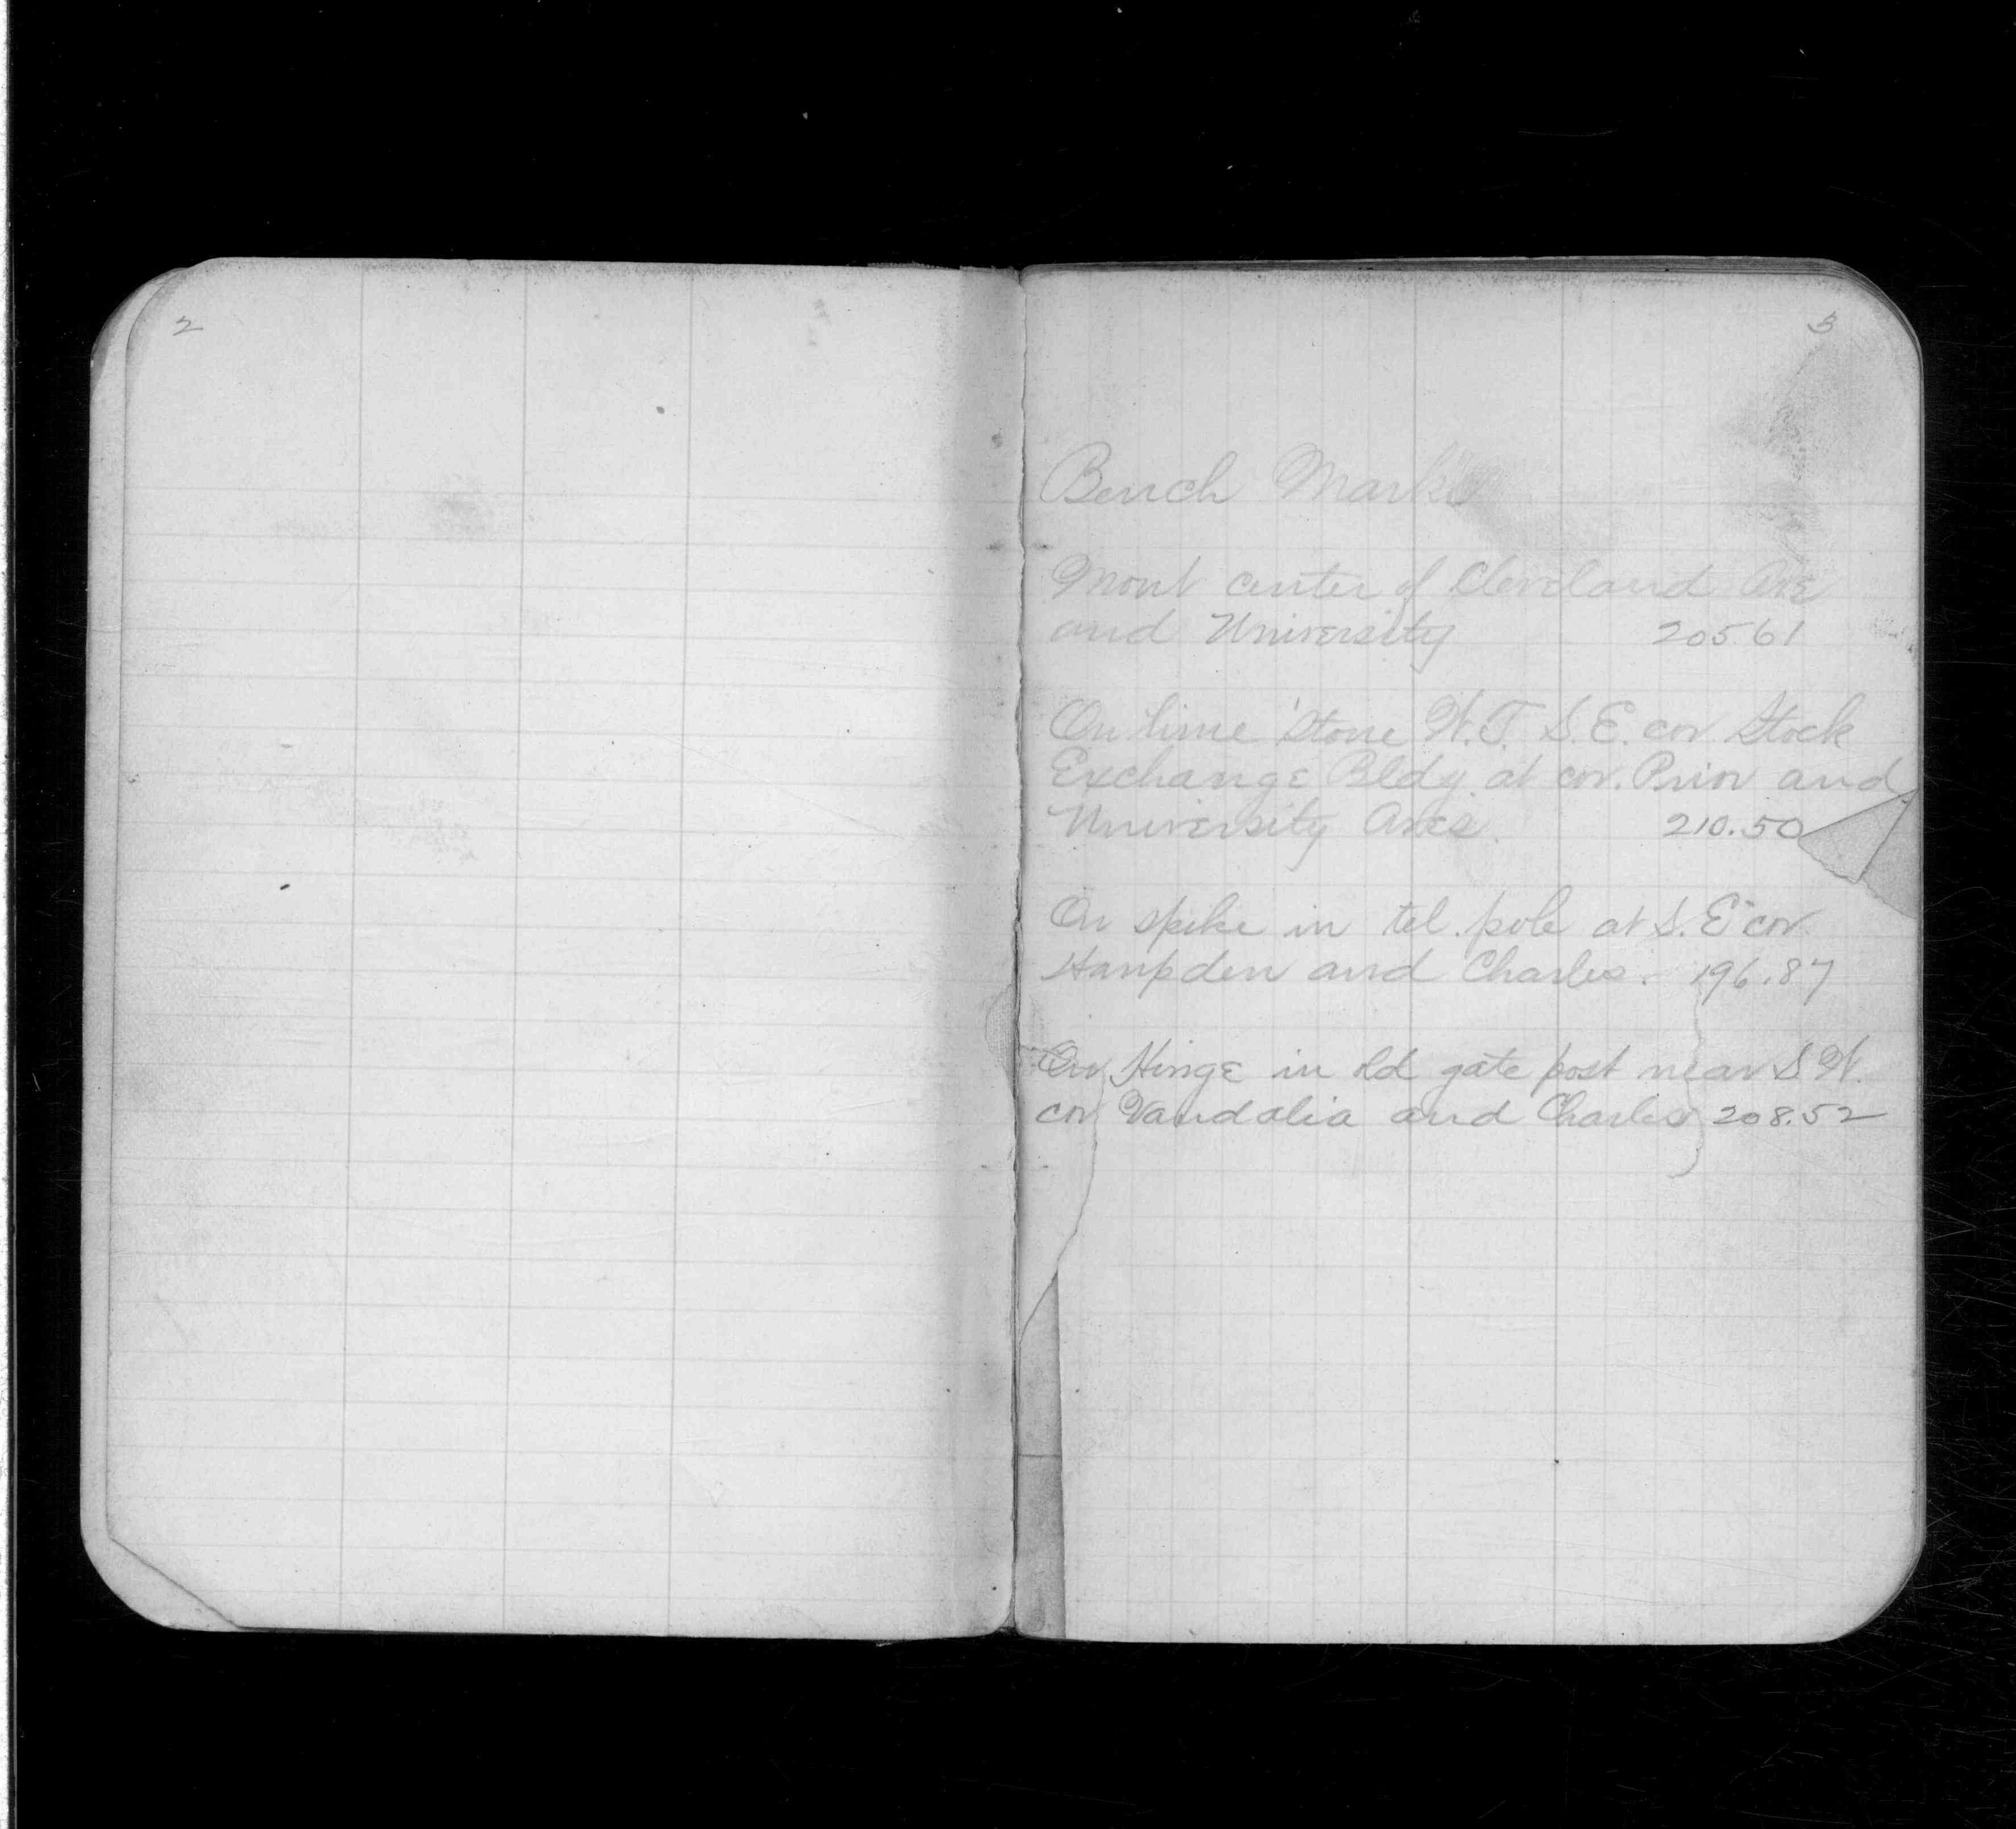 2
3
Bench Marks
Mont center of Cleveland Ave
and University 205.61
On lime stone W.T. S.E. cor. Stock
Exchange Bldg. at cor. Prior and
University Aves. 210.50
On spike in tel. pole at S.E. cor.
Hampden and Charles. 196.87
On Hinge in old gate post near S.W.
cor Vandalia and Charles 208.52